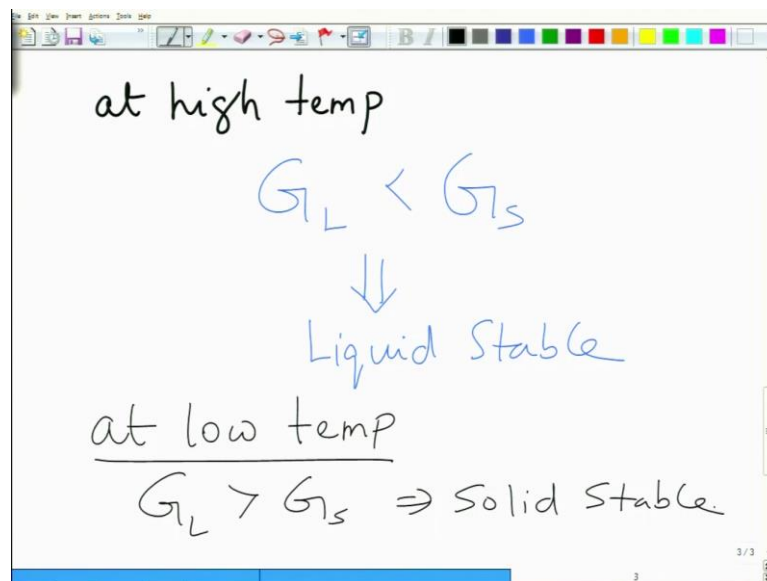 File Edit View Insert Actions Tools Help
at high temp
G_L < G_S
⇓
Liquid Stable
at low temp
G_L > G_S ⇒ Solid Stable.
3/3
3